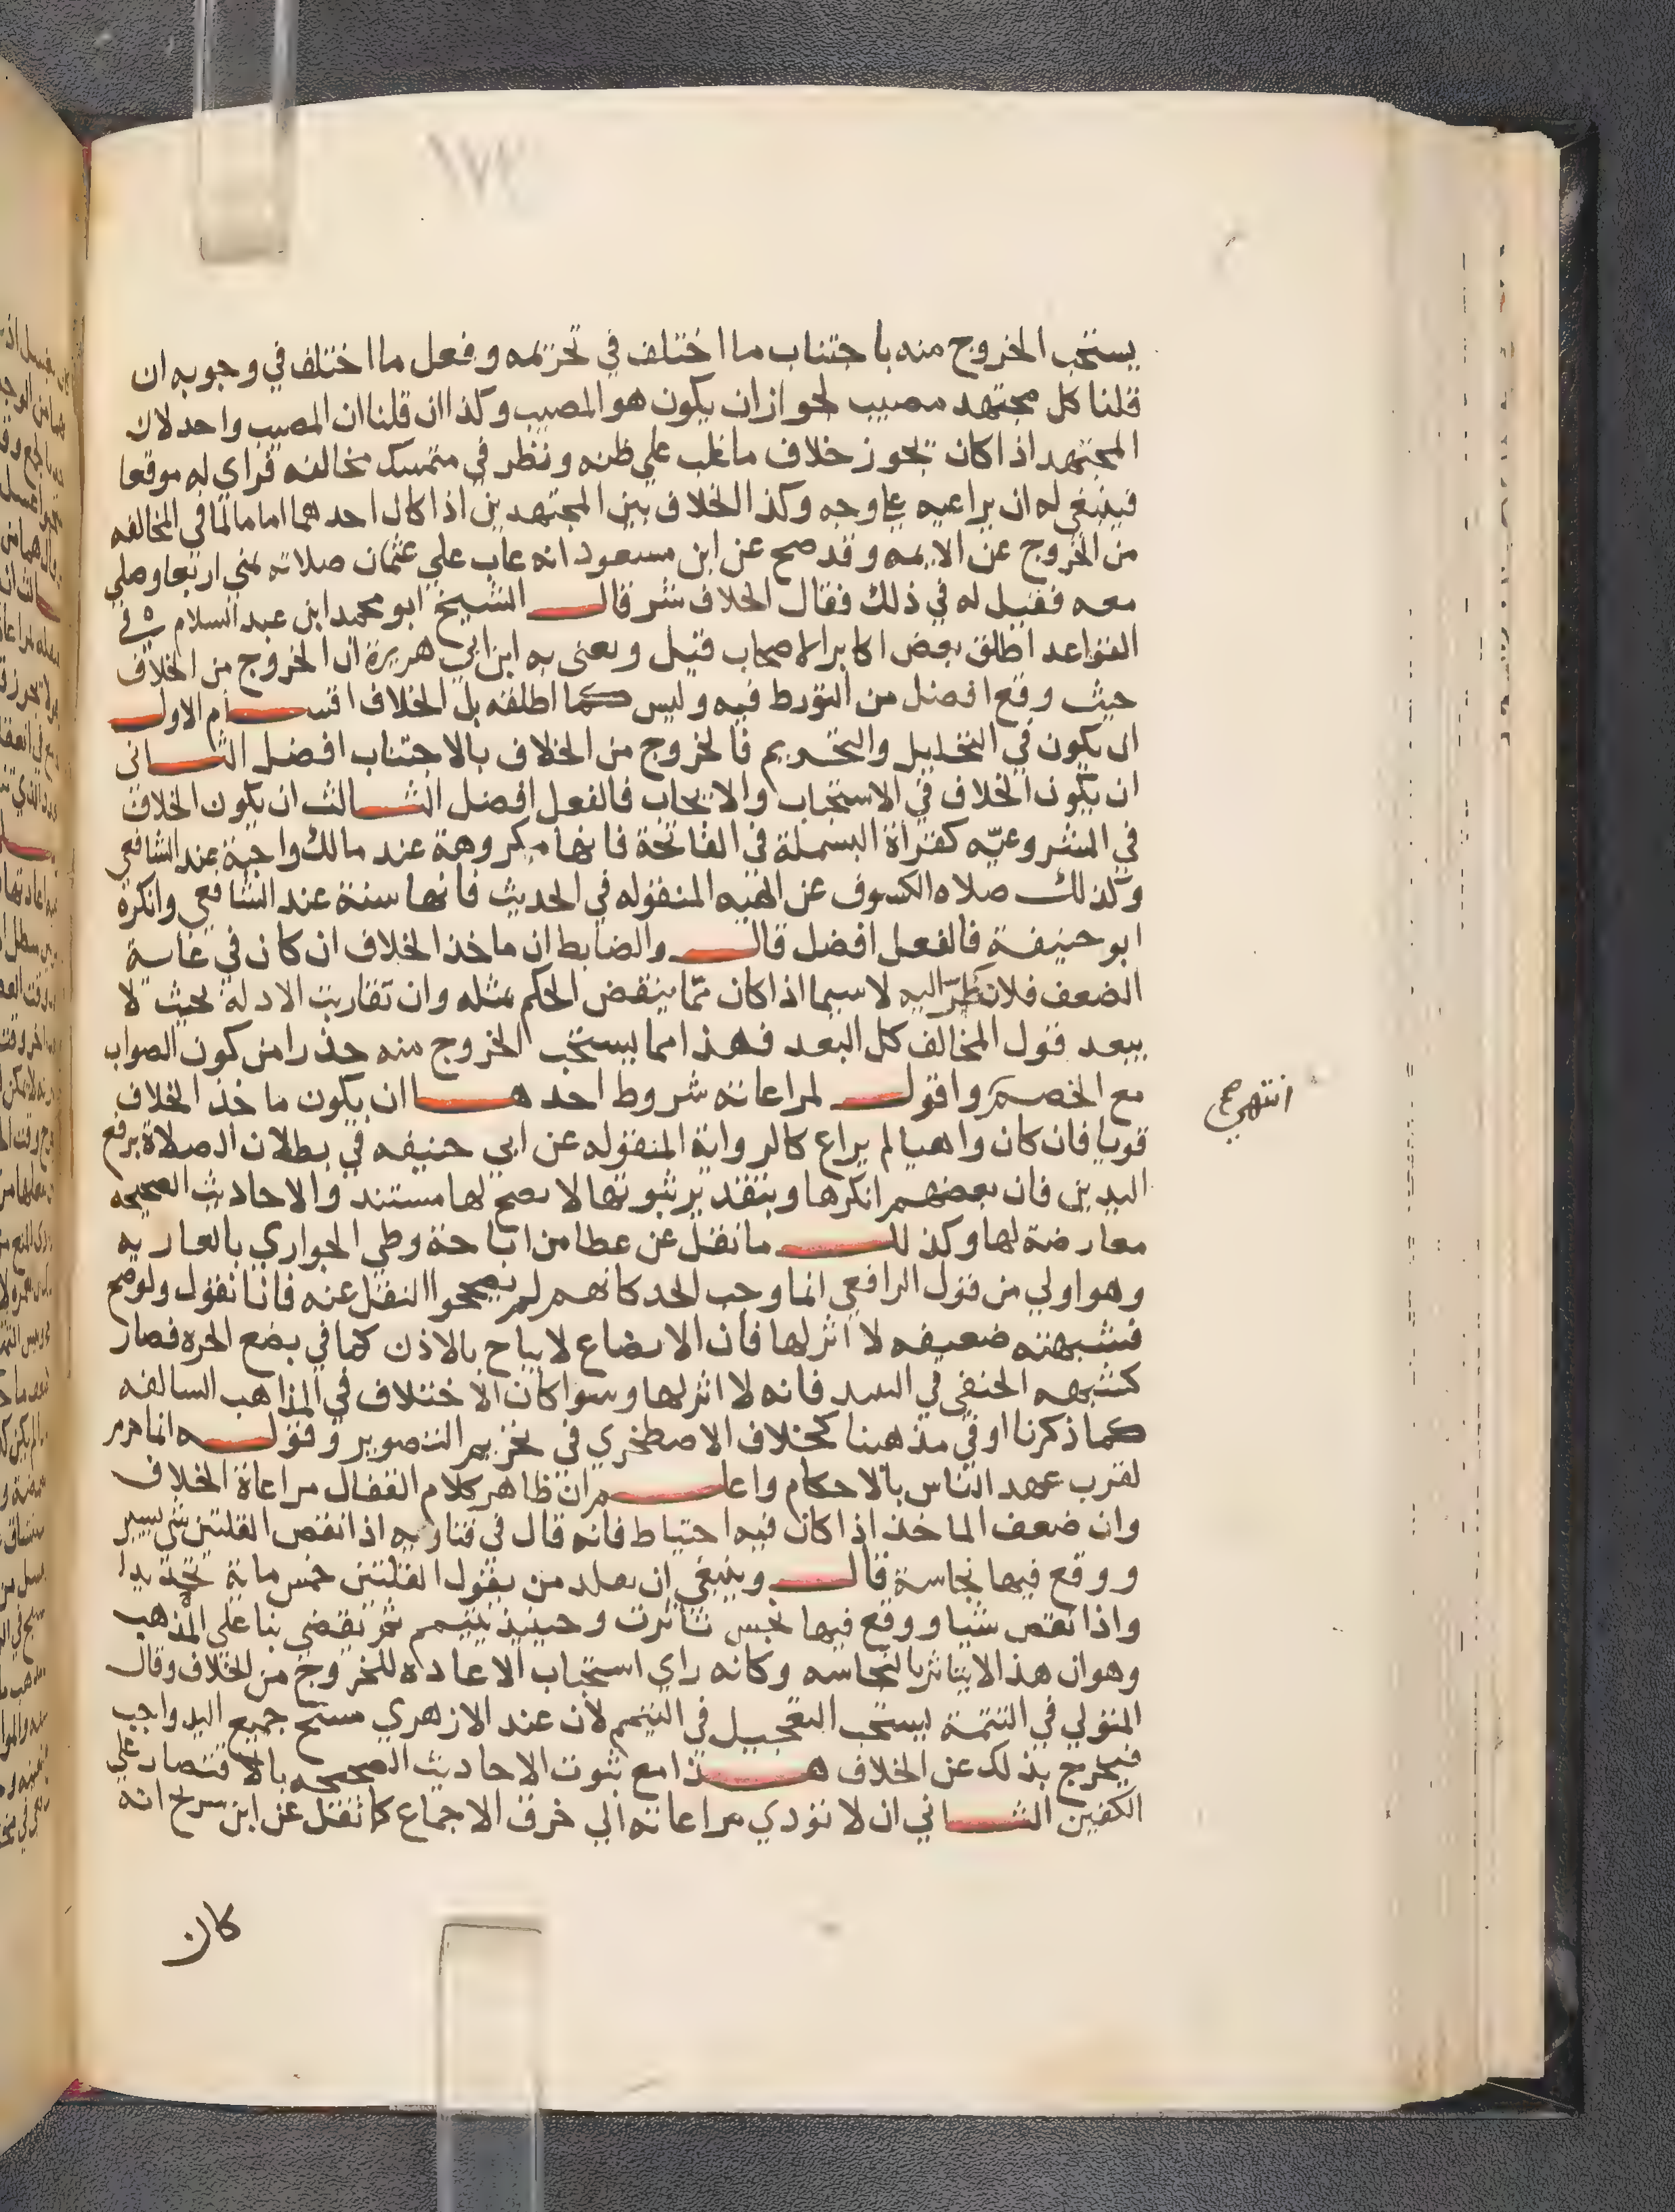 ١٧٢
يستحب الخروج منه باجتناب ما اختلف في تحريمه وفعل ما اختلف في وجوبه ان
قلنا كل مجتهد مصيب لجواز ان يكون هو المصيب وكذا ان قلنا ان المصيب واحد لان
المجتهد اذا كان يجوز خلاف ما غلب علي ظنه ونظر في متمسك مخالفه فراي له موقعا
فينبغي له ان يراعيه علي وجه وكذا الخلاف بين المجتهدين اذا كان احدهما اماما لما في المخالفه
من الخروج عن الايمه وقد صح عن ابن مسعود انه عاب علي عثمان صلاته بمني اربعا وصلي
معه فقيل له في ذلك فقال الخلاف شر قال الشيخ ابو محمد ابن عبد السلام في
القواعد اطلق بعض اكابر الاصحاب قتيل ويعني به ابن ابي هريرة ان الخروج من الخلاف
حيث وقع افضل من التورط فيه وليس كما اطلقه بل الخلاف اقسام الاول
ان يكون في التحليل والتحريم فالخروج من الخلاف بالاجتناب افضل الثاني
ان يكون الخلاف في الاستحباب والايجاب فالفعل افضل الثالث ان يكون الخلاف
في المشروعيه كقراة البسملة في الفاتحة فانها مكروهة عند مالك واجبة عند الشافعي
وكذلك صلاه الكسوف عن الهيه المنقوله في الحديث فانها سنة عند الشافعي وانكره
ابو حنيفة فالفعل افضل قال والضابط ان ماخذ الخلاف ان كان في غاية
الضعف فلا نظر اليه لا سيما اذا كان مما ينقض الحكم بمثله وان تقاربت الادلة بحيث لا
يبعد قول المخالف كل البعد فهذا مما يستحب الخروج منه حذرا من كون الصواب
مع الخصم واقول لمراعاته شروط احدها ان يكون ماخذ الخلاف
انتهي
قويا فان كان واهيا لم يراع كالرواية المنقوله عن ابي حنيفه في بطلان الصلاة برفع
اليدين فان بعضهم انكرها وبتقدير ثبوتها لا يصح لها مستند والاحاديث الصحيحه
معارضة لها وكذلك ما نقل عن عطا من اباحة وطي الجواري بالعاريه
وهو اولي من قول الرافعي انما وجب الحد كانهم لم يصححوا النقل عنه فانا نقول ولو صح
فشبهته ضعيفه لا اثر لها فان الابضاع لا يباح بالاذن كما في بضع الحره فصار
كشبهه الحنفي في النبيد فانه لا اثر لها وسوا كان الاختلاف في المذاهب السالفه
كما ذكرنا او في مذهبنا كخلاف الاصطخري في تحريم التصوير وقوله انما حرم
لقرب عهد الناس بالاحكام واعلم ان ظاهر كلام القفال مراعاة الخلاف
وان ضعف الماخذ اذا كان فيه احتياط فانه قال في فتاويه اذا نقص القلتين شي يسير
ووقع فيها نجاسة قال وينبغي ان يقلد من يقول القلتين خمس ماية تحديدا
واذا نقص شيا ووقع فيها نجس تاثرت وحينيذ يتيمم ثم يقضي بنا علي المذهب
وهو ان هذا لا يتاثر بالنجاسه وكانه راي استحباب الاعاده للخروج من الخلاف وقال
المتولي في التتمة يستحب التعجيل في التيمم لان عند الازهري مسح جميع اليد واجب
فيخرج بذلك عن الخلاف هذا مع ثبوت الاحاديث الصحيحه بالاقتصار علي
الكفين الثاني ان لا تؤدي مراعاته الي خرق الاجماع كما نقل عن ابن سريج انه
كان